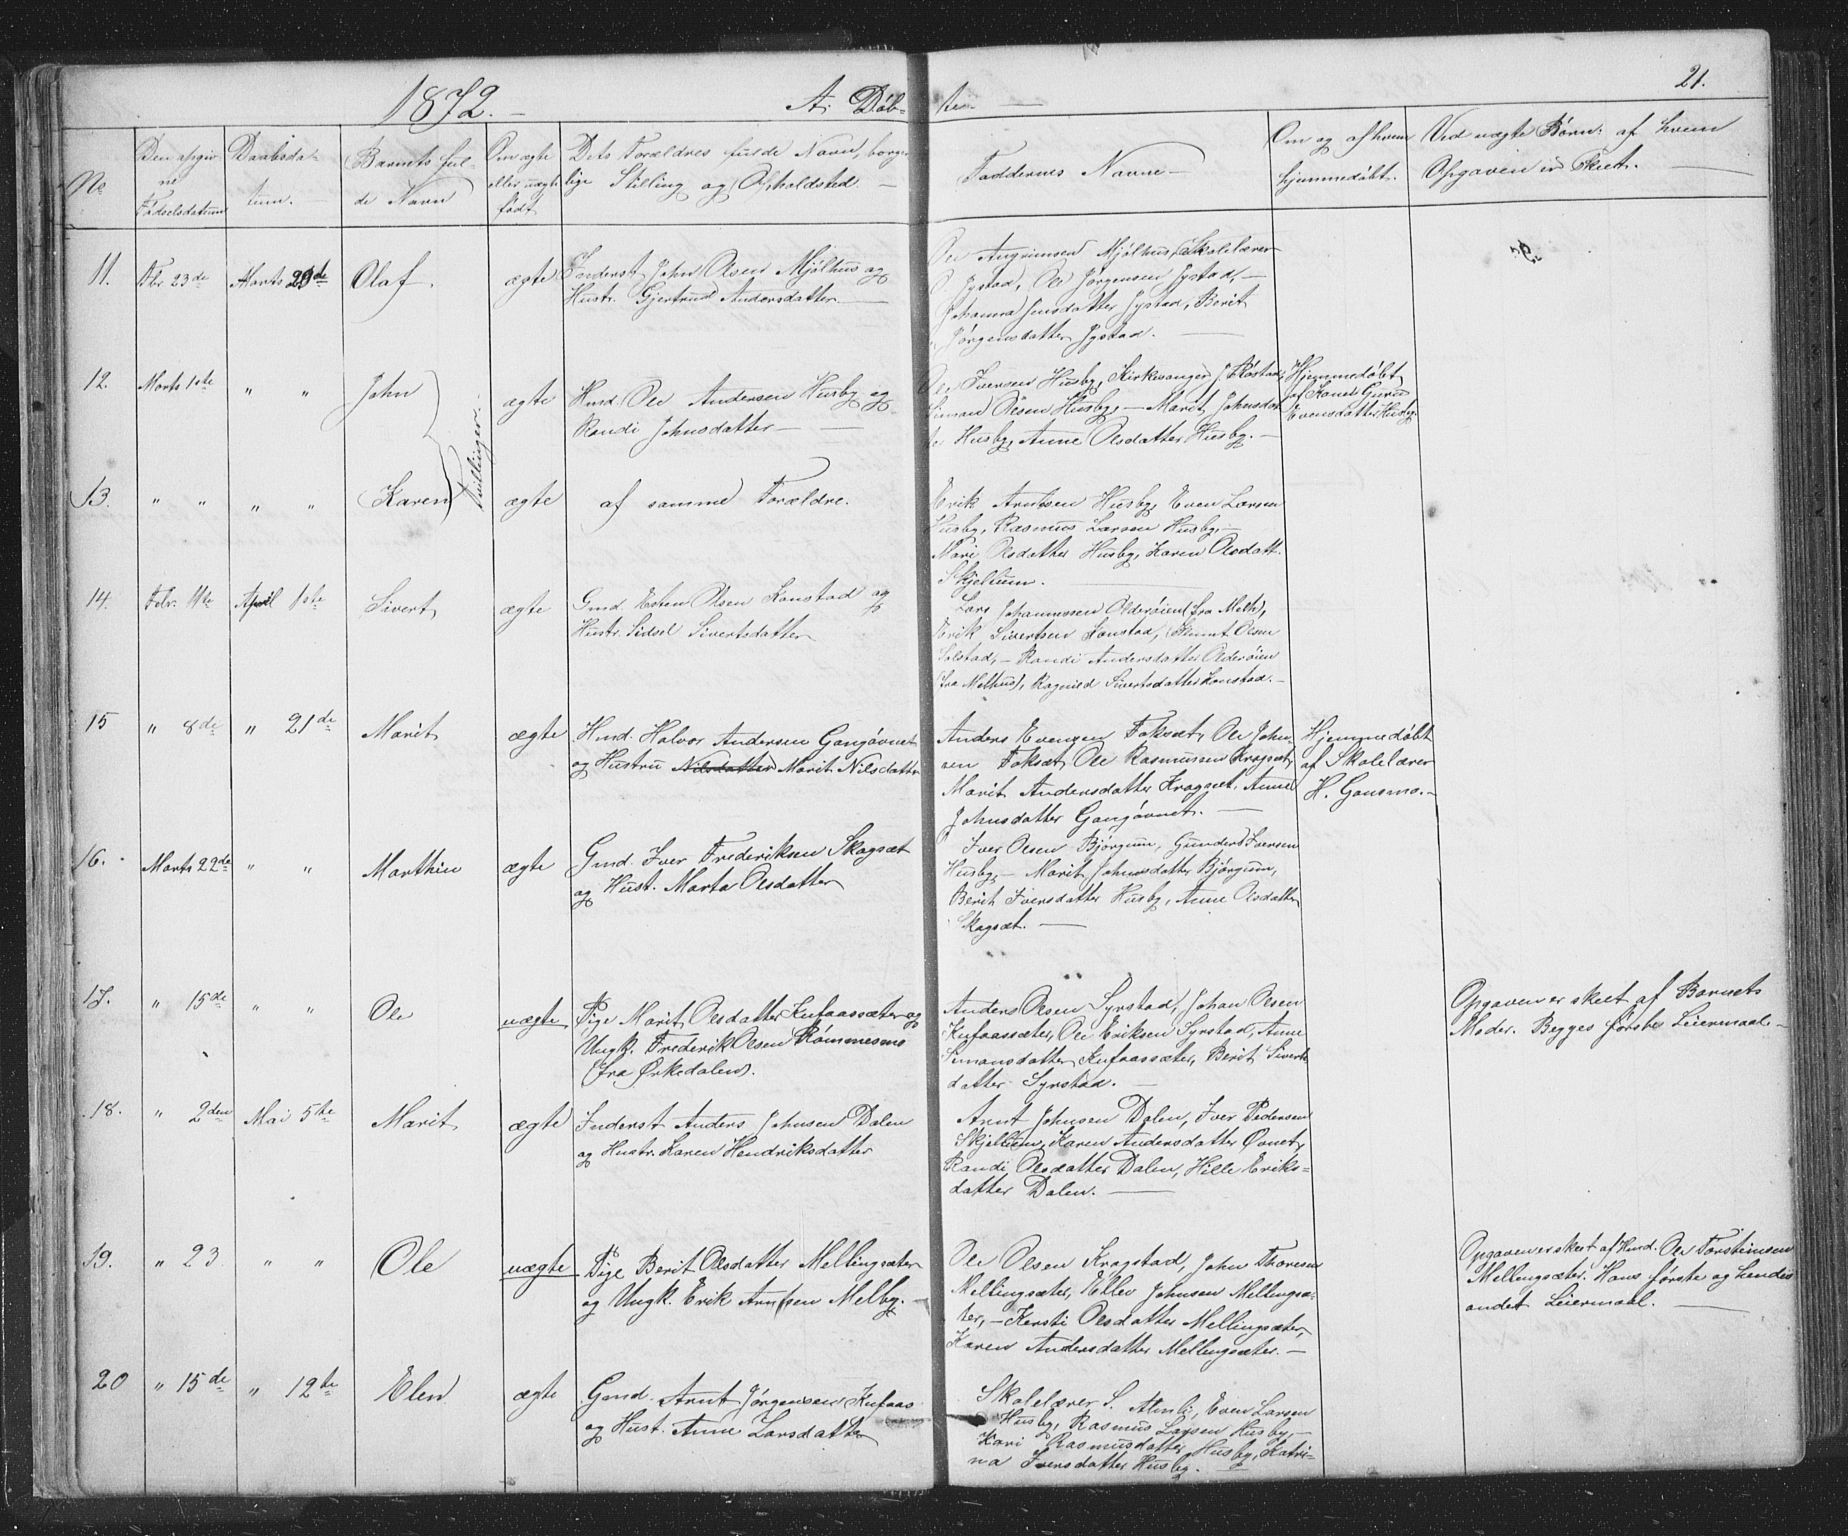 1872. A. Døb- te. 21.
No
Den opgiv-
ne
Fødselsdatum
Daabsda-
tum.
Barnets ful-
de Navn
Om ægte
eller uægte
født
Dets Forældres fulde Navn, borger-
lige Stilling og Opholdsted.
Faddernes Navne
Om og af hvem
hjemmedøbt.
Ved uægte Børn: af hvem
Opgaven er Skeet.
11. Fbr. 23de Marts 29de Olaf. ægte
Inderst John Olsen Mjølhus og
Hustr. Gjertrud Andersdatter.
Ole Angrimsen Mjølhus, Skolelærer
Jystad, Ole Jørgensen Jystad,
Johanna Jensdatter Jystad, Berit
Jørgensdatter Jystad.
12. Marts 1ste " " John ægte
Tvillinger.
Hmd. Ole Andersen Husby og
Randi Johnsdatter
Ole Iversen Husby, Kirkesanger J. Røstad,
Simon Olsen Husby, Marit Johnsdat-
ter Husby, Anne Olsdatter Husby.
Hjemmedøbt
af Kone Guru
Evensdatter Husby.
13. " " " " Karen ægte af samme Forældre.
Erik Arntsen Husby, Even Larsen
Husby, Rasmus Larsen Husby,
Mari Olsdatter Husby, Karen Olsdatt.
Skjetum.
14. Febr. 11te April 1ste Sivert ægte
Gmd. Esten Olsen Konstad og
Hustr. Sidsel Sivertsdatter
Lars Johannesen Olderøien (fra Melh),
Erik Sivertsen Konstad, Arnt Olsen
Solstad, Randi Andersdatter Olderøien
(fra Melhus), Ragnild Sivertsdatter Konstad.
15 " 8de " 21de Marit ægte
Hmd. Halvor Andersen Gangøvnet
og Hustru Nilsdatter Marit Nilsdatter
Anders Evensen Foksæt, Ole John-
sen Foksæt, Ole Rasmussen Kragsæt,
Marit Andersdatter Kragsæt, Anne
Johnsdatter Gangøvnet.
Hjemmedøbt
af Skolelærer
H. Gousmo.
16. Marts 22de " " Marthin ægte
Gmd. Iver Frederiksen Skagsæt
og Hust. Marta Olsdatter
Iver Olsen Bjørgum, Gunder Iversen
Husby, Marit Johnsdatter Bjørgum,
Berit Iversdatter Husby, Anne Olsdatter
Skagsæt.
17. " 15de " " Ole uægte
Pige Marit Olsdatter Kufaassæter og
Ungk. Frederik Olsen Rømmesmo
(fra Ørkedalen).
Anders Olsen Syrstad, Johan Olsen
Kufaassæter, Ole Eriksen Syrstad, Anne
Simonsdatter Kufaassæter, Berit Siverts-
datter Syrstad.
Opgaven er skeet af Barnets
Moder. Begges første Leiermaal.
18. " 2den Mai 5te Marit ægte
Inderst Anders Johnsen Dalen
og Hustr. Karen Hendriksdatter
Arnt Johnsen Dalen, Iver Pedersen
Skjetum, Karen Andersdatter Øvnet,
Randi Olsdatter Dalen, Hille Eriks-
datter Dalen.
19. " 23 " " Ole uægte
Pige Berit Olsdatter Mellingsæter
og Ungk. Erik Arntsen Melby.
Ole Olsen Kragstad, John Thoresen
Mellingsæter, Ellev Johnsen Mellingsæ-
ter, Kersti Olsdatter Mellingsæter,
Karen Andersdatter Mellingsæter.
Opgaven er skeet af Hmd. Ole Torsteinsen
Mellingsæter. Hans første og hendes
andet Leiermaal.
20 " 15de " 12te Elen ægte
Gmd. Arnt Jørgensen Kufaas
og Hust. Anne Larsdatter
Skolelærer S. Almli, Even Larsen
Husby, Rasmus Larsen Husby,
Kari Rasmusdatter Husby, Katri-
na Iversdatter Husby.